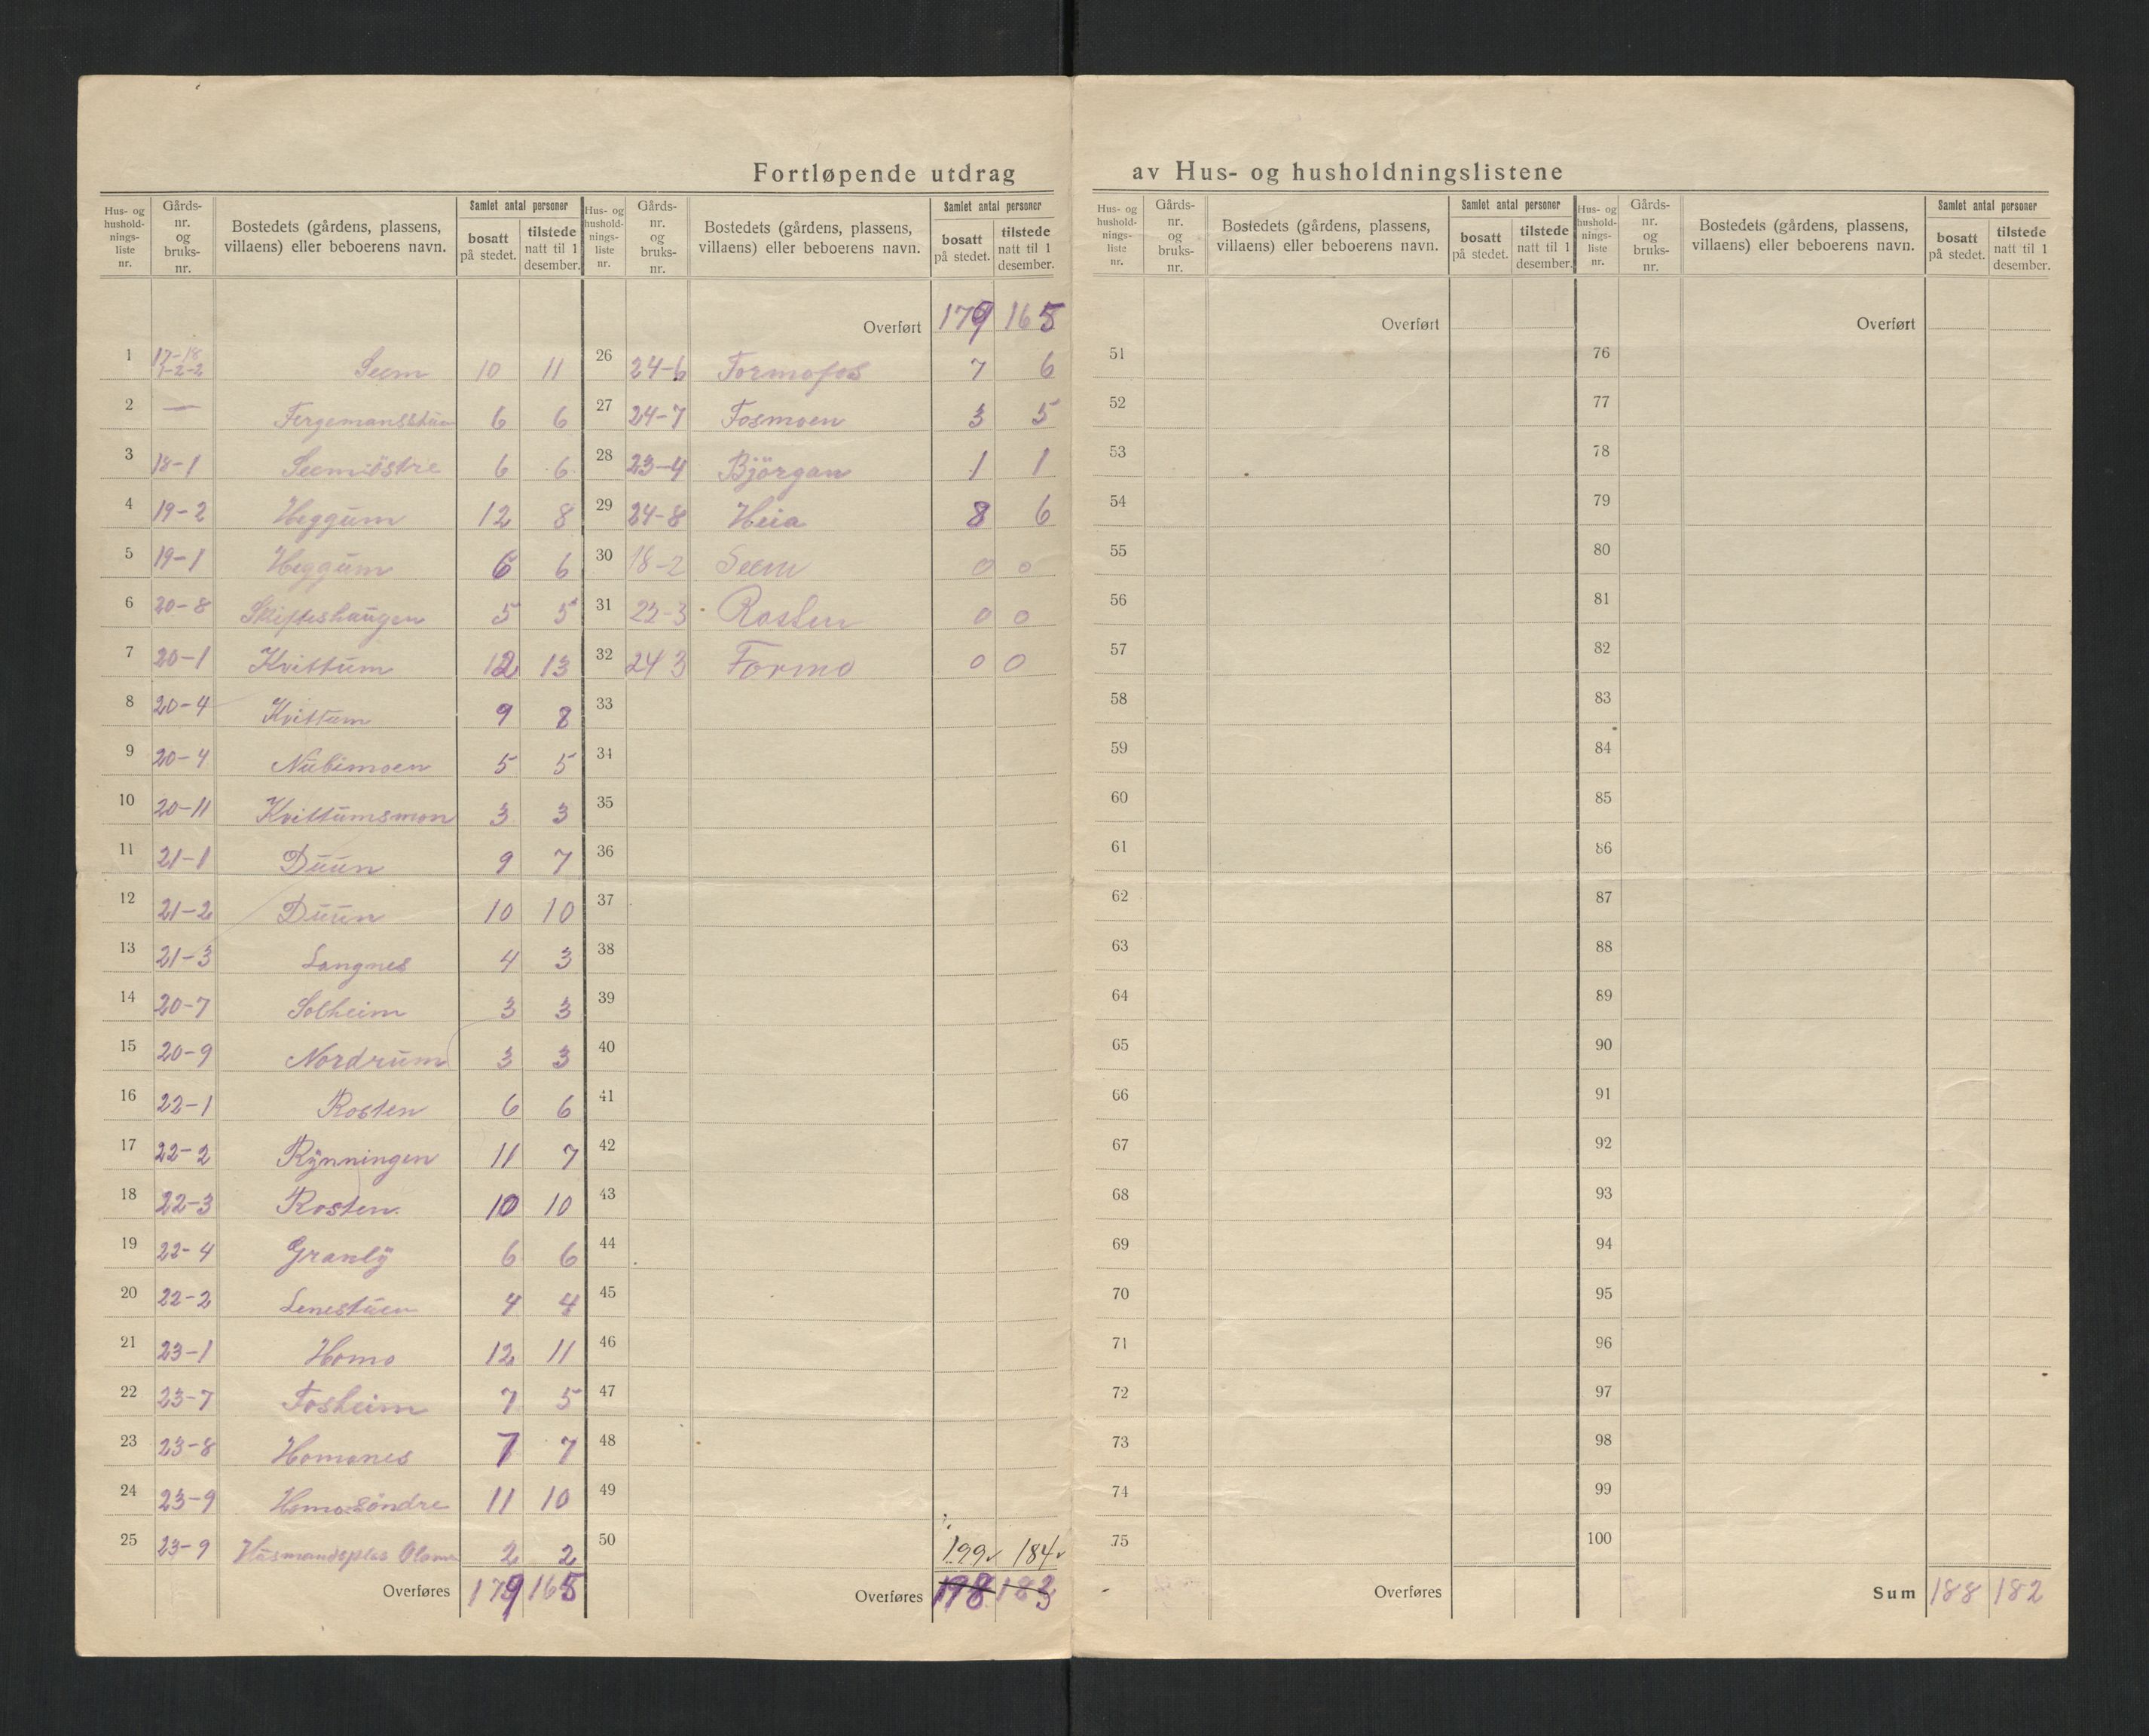 Fortløpende utdrag av Hus- og husholdningslistene
Hus- og hushold-nings-liste nr. | Gårds-nr. og bruks-nr. | Bostedets (gårdens, plassens, villaens) eller beboerens navn. | Samlet antal personer | bosatt på stedet. | tilstede natt til 1 desember.
1 17-18 1-2-2 Seem 10 11
2 — Fergemansstuen 6 6
3 18-1 Seem östre 6 6
4 19-2 Heggum 12 8
5 19-1 Heggum 6 6
6 20-8 Skifteshaugen 5 5
7 20-1 Kvittum 12 13
8 20-4 Kvittum 9 8
9 20-4 Nubimoen 5 5
10 20-11 Kvittumsmon 3 3
11 21-1 Duun 9 7
12 21-2 Duun 10 10
13 21-3 Langnes 4 3
14 20-7 Solheim 3 3
15 20-9 Nordrum 3 3
16 22-1 Rosten 6 6
17 22-2 Rynningen 11 7
18 22-3 Rosten. 10 10
19 22-4 Granly 6 6
20 22-2 Lenestuen 4 4
21 23-1 Homo 12 11
22 23-7 Fosheim 7 5
23 23-8 Homones 7 7
24 23-9 Homo söndre 11 10
25 23-9 Husmandsplas 2 2
Overføres 179 165
Hus- og hushold-nings-liste nr. | Gårds-nr. og bruks-nr. | Bostedets (gårdens, plassens, villaens) eller beboerens navn. | Samlet antal personer | bosatt på stedet. | tilstede natt til 1 desember.
Overført 179 165
26 24-6 Formofos 7 6
27 24-7 Fosmoen 3 5
28 23-4 Björgan 1 1
29 24-8 Heia 8 6
30 18-2 Seem 0 0
31 22-3 Rosten 0 0
32 24 3 Formo 0 0
33
34
35
36
37
38
39
40
41
42
43
44
45
46
47
48
49
50
199 184
Overføres 198 183
Hus- og hushold-nings-liste nr. | Gårds-nr. og bruks-nr. | Bostedets (gårdens, plassens, villaens) eller beboerens navn. | Samlet antal personer | bosatt på stedet. | tilstede natt til 1 desember.
Overført
51
52
53
54
55
56
57
58
59
60
61
62
63
64
65
66
67
68
69
70
71
72
73
74
75
Overføres
Hus- og hushold-nings-liste nr. | Gårds-nr. og bruks-nr. | Bostedets (gårdens, plassens, villaens) eller beboerens navn. | Samlet antal personer | bosatt på stedet. | tilstede natt til 1 desember.
Overført
76
77
78
79
80
81
82
83
84
85
86
87
88
89
90
91
92
93
94
95
96
97
98
99
100
Sum 188 182